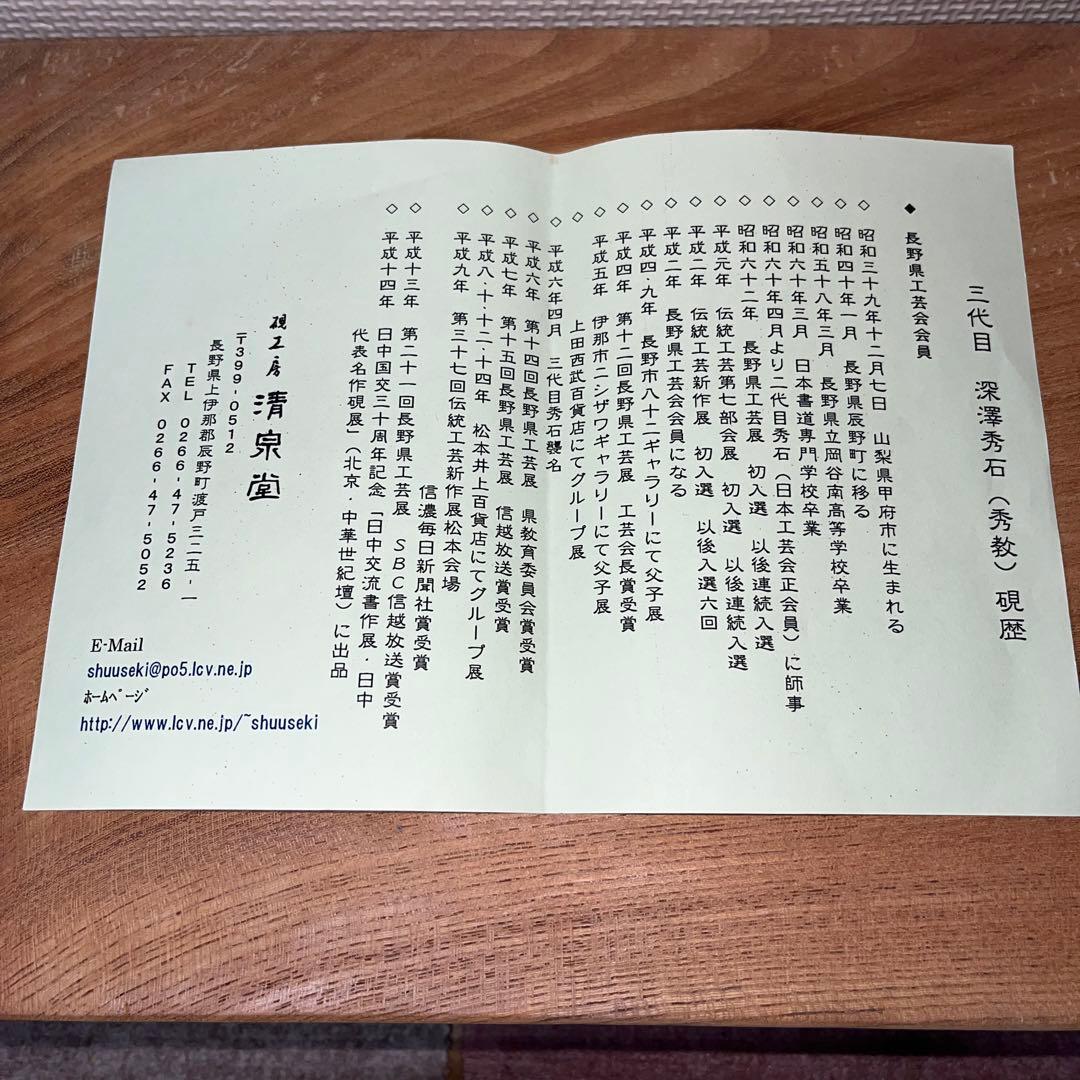 三代目 深澤秀石（秀教）硯歴
◆ 長野県工芸会会員
◇ 昭和三十九年十二月七日 山梨県甲府市に生まれる
◇ 昭和四十年一月 長野県辰野町に移る
◇ 昭和五十八年三月 長野県立岡谷南高等学校卒業
◇ 昭和六十年三月 日本書道専門学校卒業
◇ 昭和六十年四月より二代目秀石（日本工芸会正会員）に師事
◇ 昭和六十二年 長野県工芸展 初入選 以後連続入選
◇ 平成元年 伝統工芸第七部会展 初入選 以後連続入選
◇ 平成二年 伝統工芸新作展 初入選 以後入選六回
◇ 平成二年 長野県工芸会会員になる
◇ 平成四・九年 長野市八十二ギャラリーにて父子展
◇ 平成四年 第十二回長野県工芸展 工芸会長賞受賞
◇ 平成五年 伊那市ニシザワギャラリーにて父子展
◇ 上田西武百貨店にてグループ展
◇ 平成六年四月 三代目秀石襲名
◇ 平成六年 第十四回長野県工芸展 県教育委員会賞受賞
◇ 平成七年 第十五回長野県工芸展 信越放送賞受賞
◇ 平成八・十・十二・十四年 松本井上百貨店にてグループ展
◇ 平成九年 第三十七回伝統工芸新作展松本会場
信濃毎日新聞社賞受賞
◇ 平成十三年 第二十一回長野県工芸展 ＳＢＣ信越放送賞受賞
◇ 平成十四年 日中国交三十周年記念「日中交流書作展・日中
代表名作硯展」（北京・中華世紀壇）に出品
硯工房 清泉堂
〒399-0512
長野県上伊那郡辰野町渡戸三二五-一
TEL 0266-47-5236
FAX 0266-47-5052
E-Mail
shuuseki@po5.lcv.ne.jp
ﾎｰﾑﾍﾟｰｼﾞ
http://www.lcv.ne.jp/~shuuseki